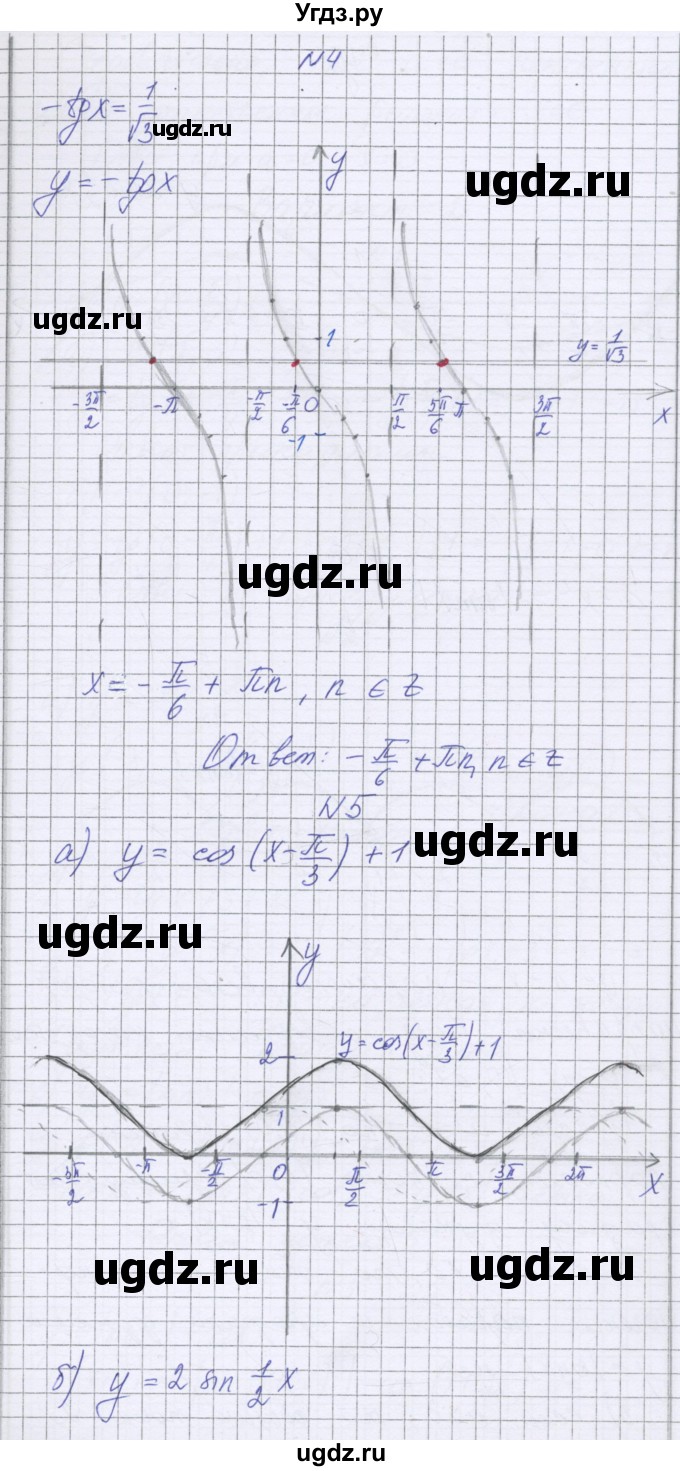 Угдз.ру
N4
-tgx = 1/√3
ugdz.ru
y = -tgx
ugdz.ru
y
ugdz.ru
1
y = 1/√3
-3π/2 -π -π/2 -π/6 0 π/2 5π/6 π 3π/2 x
-1
ugdz.ru
x = -π/6 + πn, n ∈ Z
Ответ: -π/6 + πn, n ∈ Z
N5
а) y = cos(x - π/3) + 1
ugdz.ru
ugdz.ru
y
2
y = cos(x - π/3) + 1
1
-3π/2 -π -π/2 0 π/2 π 3π/2 2π x
-1
ugdz.ru
ugdz.ru
б) y = 2 sin 1/2 x
ugdz.ru